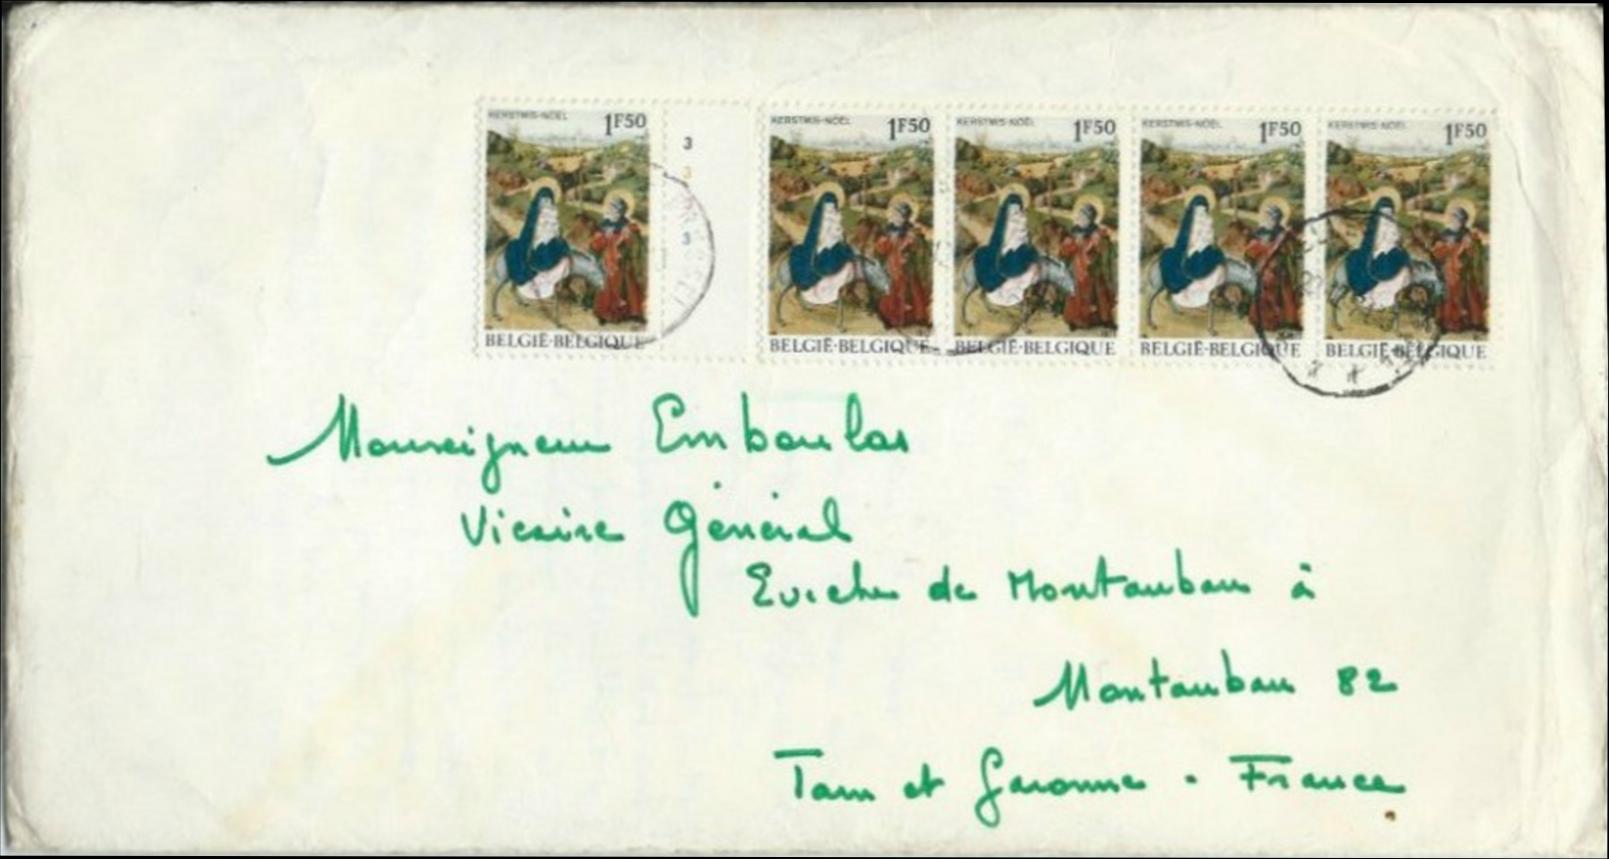 KERSTMIS-NOËL 1F50
BELGIË-BELGIQUE
3
3
3
KERSTMIS-NOËL 1F50
BELGIË-BELGIQUE
KERSTMIS-NOËL 1F50
BELGIË-BELGIQUE
KERSTMIS-NOËL 1F50
BELGIË-BELGIQUE
KERSTMIS-NOËL 1F50
BELGIË-BELGIQUE
Monseigneur Emboulas
Vicaire Général
Evêché de Montauban à
Montauban 82
Tarn et Garonne - France